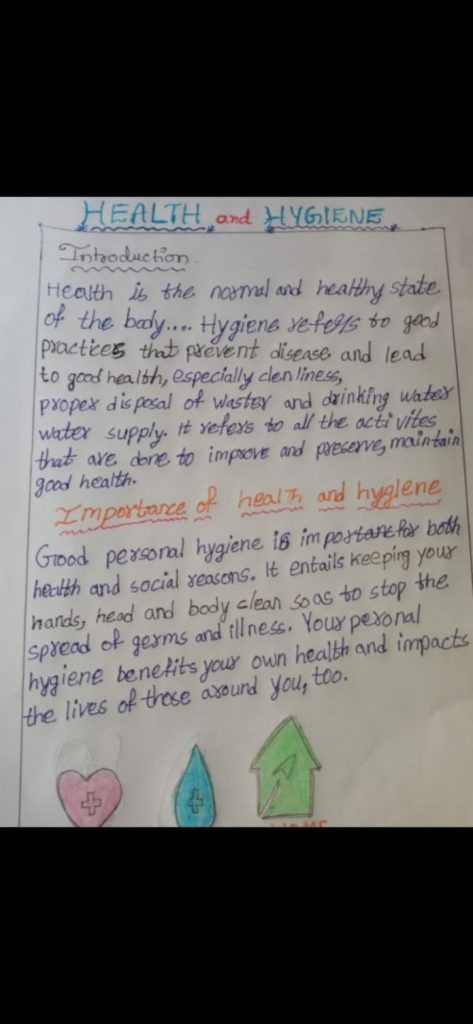 HEALTH and HYGIENE
Introduction
Health is the normal and healthy state
of the body.... Hygiene refers to good
practices that prevent disease and lead
to good health, especially clenliness,
proper disposal of waster and drinking water
water supply. It refers to all the acti vites
that are done to improve and preserve, maintain
good health.
Importance of health and hyglene
Good personal hygiene is important for both
health and social reasons. It entails keeping your
hands, head and body clean so as to stop the
spread of germs and illness. Your peronal
hygiene benefits your own health and impacts
the lives of those around you, too.
HOME